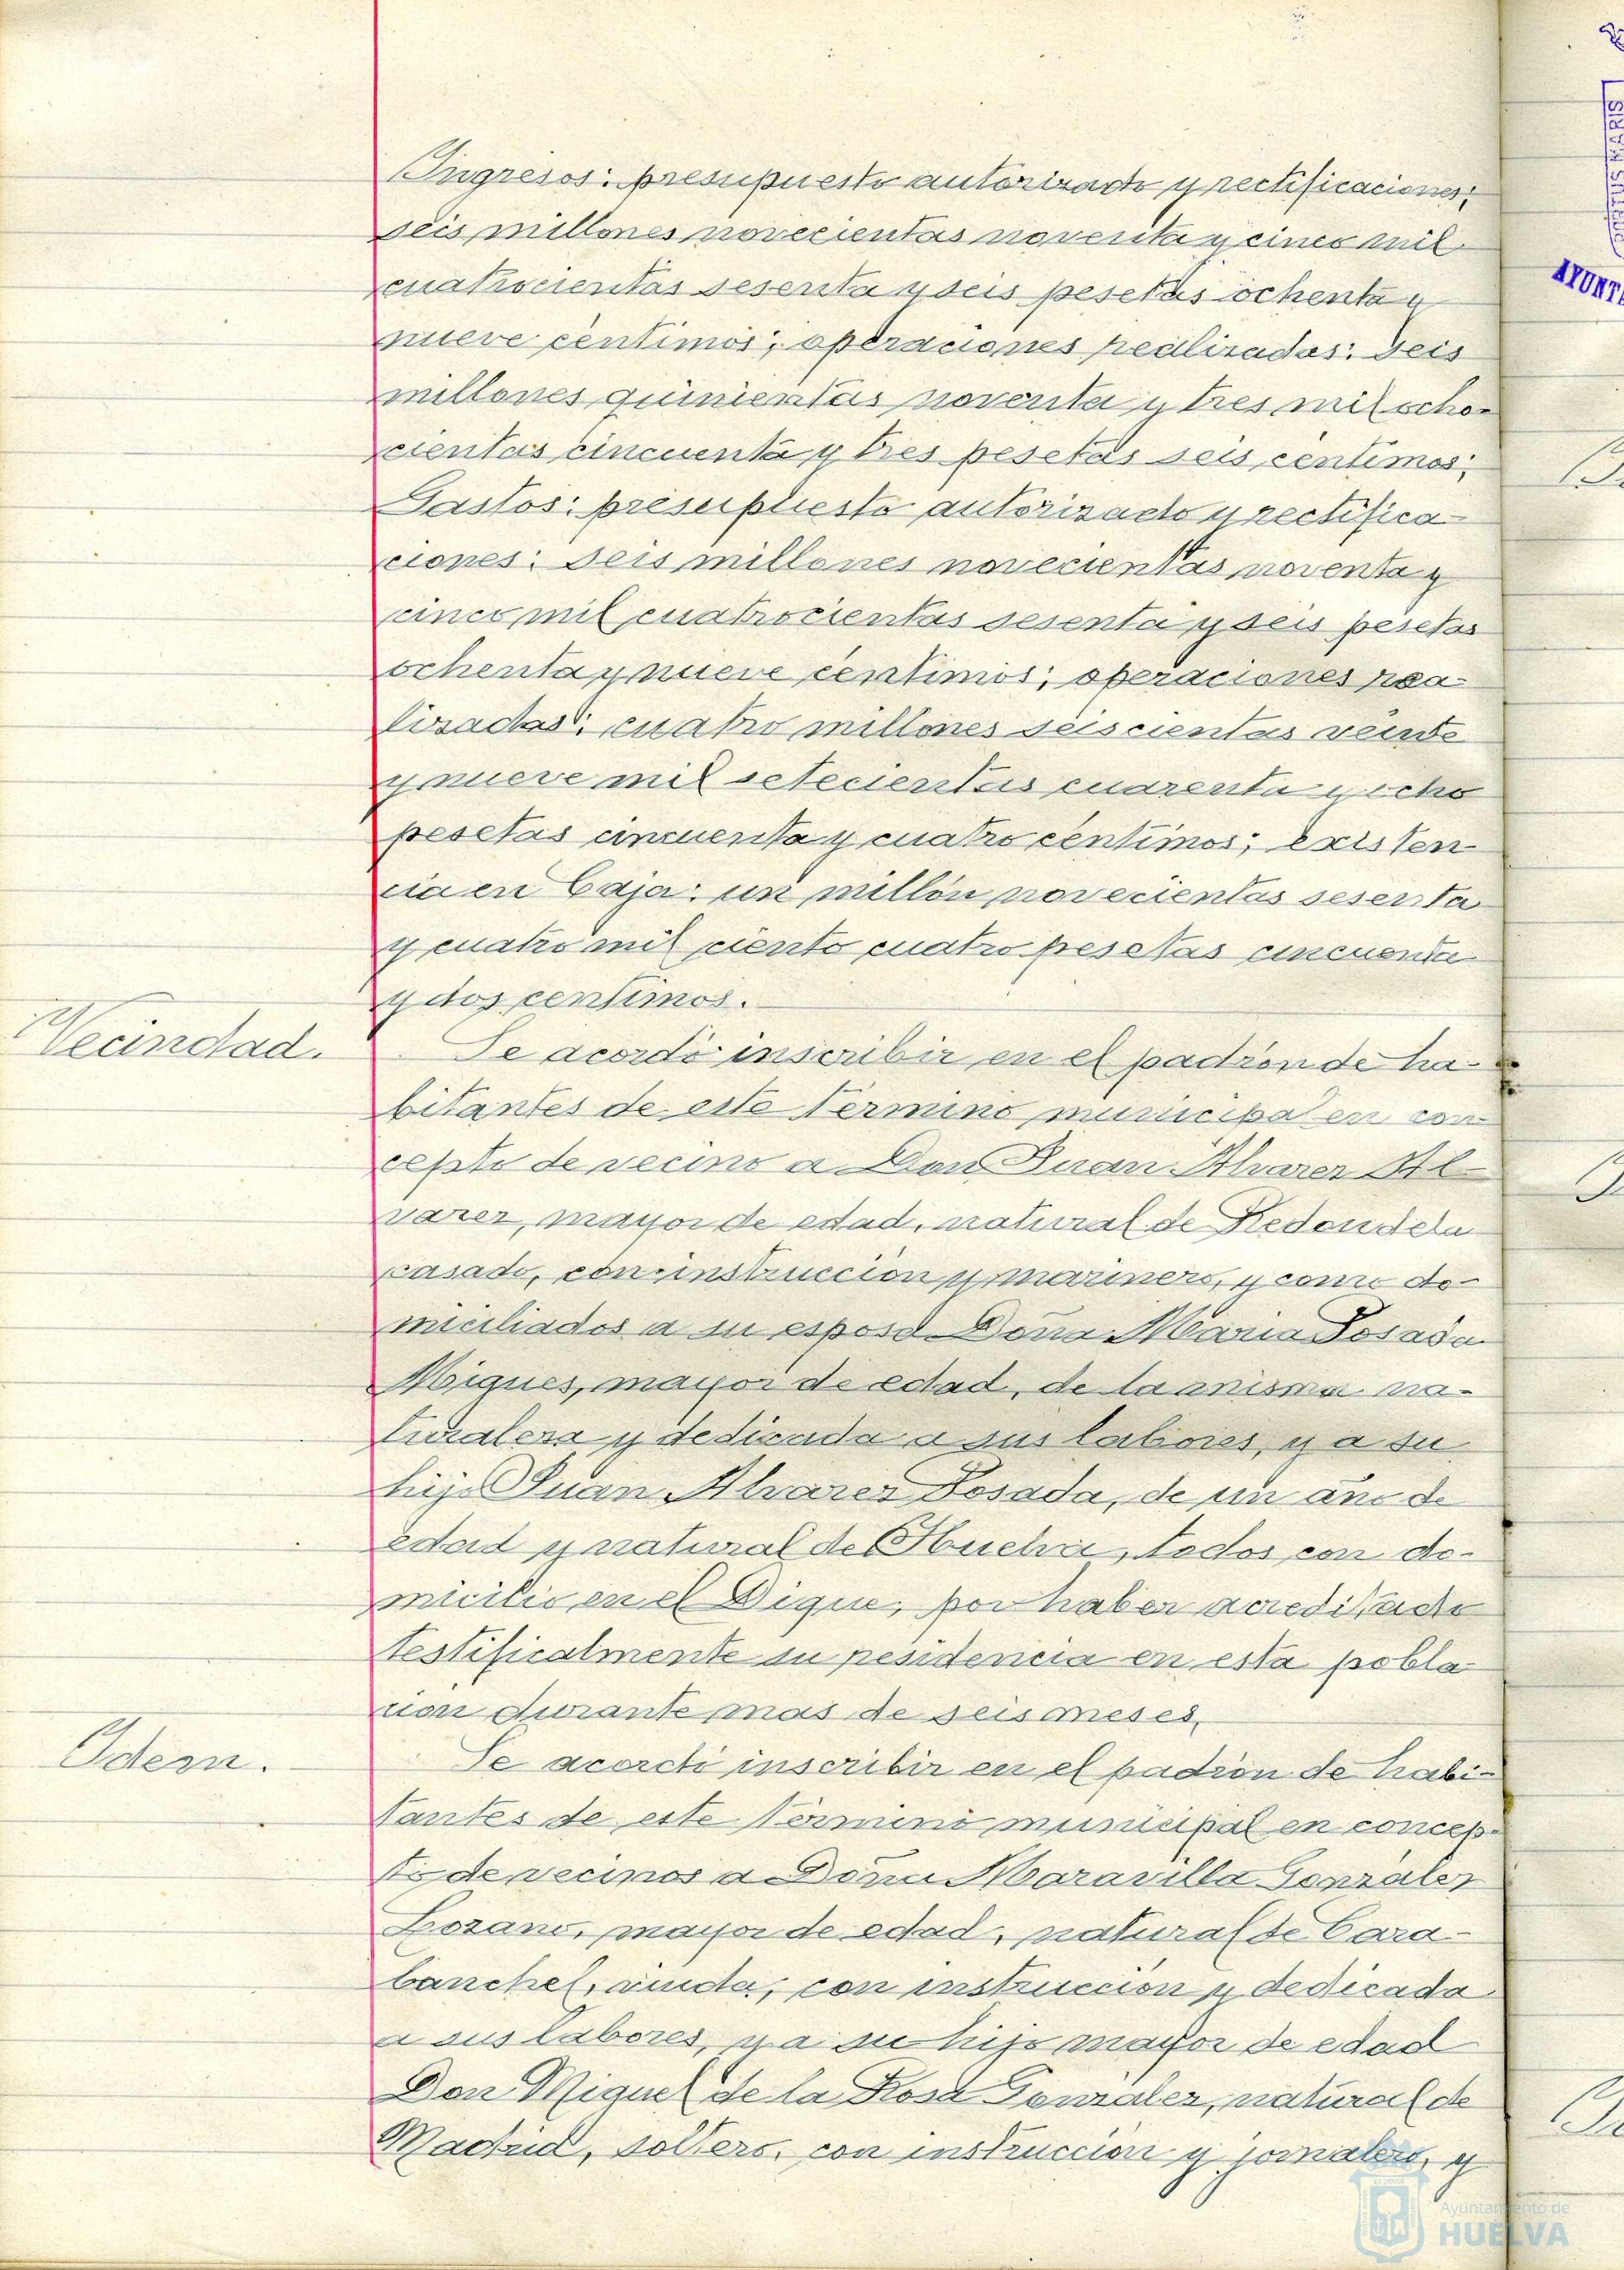 Ingresos: presupuesto autorizado y rectificaciones;
seis millones novecientas noventa y cinco mil
cuatrocientas sesenta y seis pesetas ochenta y
nueve céntimos; operaciones realizadas: seis
millones quinientas noventa y tres mil ocho-
cientas cincuenta y tres pesetas seis céntimos;
Gastos: presupuesto autorizado y rectifica-
ciones: seis millones novecientas noventa y
cinco mil cuatrocientas sesenta y seis pesetas
ochenta y nueve céntimos; operaciones rea-
lizadas: cuatro millones seiscientas veinte
y nueve mil setecientas cuarenta y ocho
pesetas cincuenta y cuatro céntimos; existen-
cia en Caja: un millón novecientas sesenta
y cuatro mil ciento cuatro pesetas cincuenta
y dos centimos.
Vecindad.
Se acordó inscribir en el padrón de ha-
bitantes de este término municipal en con-
cepto de vecino a Don Juan Alvarez Al-
varez, mayor de edad, natural de Redondela
casado, con instrucción y marinero, y como do-
miciliados a su esposa Doña Maria Posada
Migues, mayor de edad, de la misma na-
turaleza y dedicada a sus labores, y a su
hijo Juan Alvarez Posada, de un año de
edad y natural de Huelva, todos con do-
micilio en el Dique, por haber acreditado
testificalmente su residencia en esta pobla-
cion durante mas de seis meses.
Idem.
Se acordó inscribir en el padrón de habi-
tantes de este término municipal en concep-
to de vecinos a Doña Maravilla González
Lozano, mayor de edad, natural de Cara-
banchel, viuda, con instrucción y dedicada
a sus labores, y a su hijo mayor de edad
Don Miguel de la Rosa González, natural de
Madrid, soltero, con instrucción y jornalero, y
AYUNT
Ayuntamiento de
HUELVA